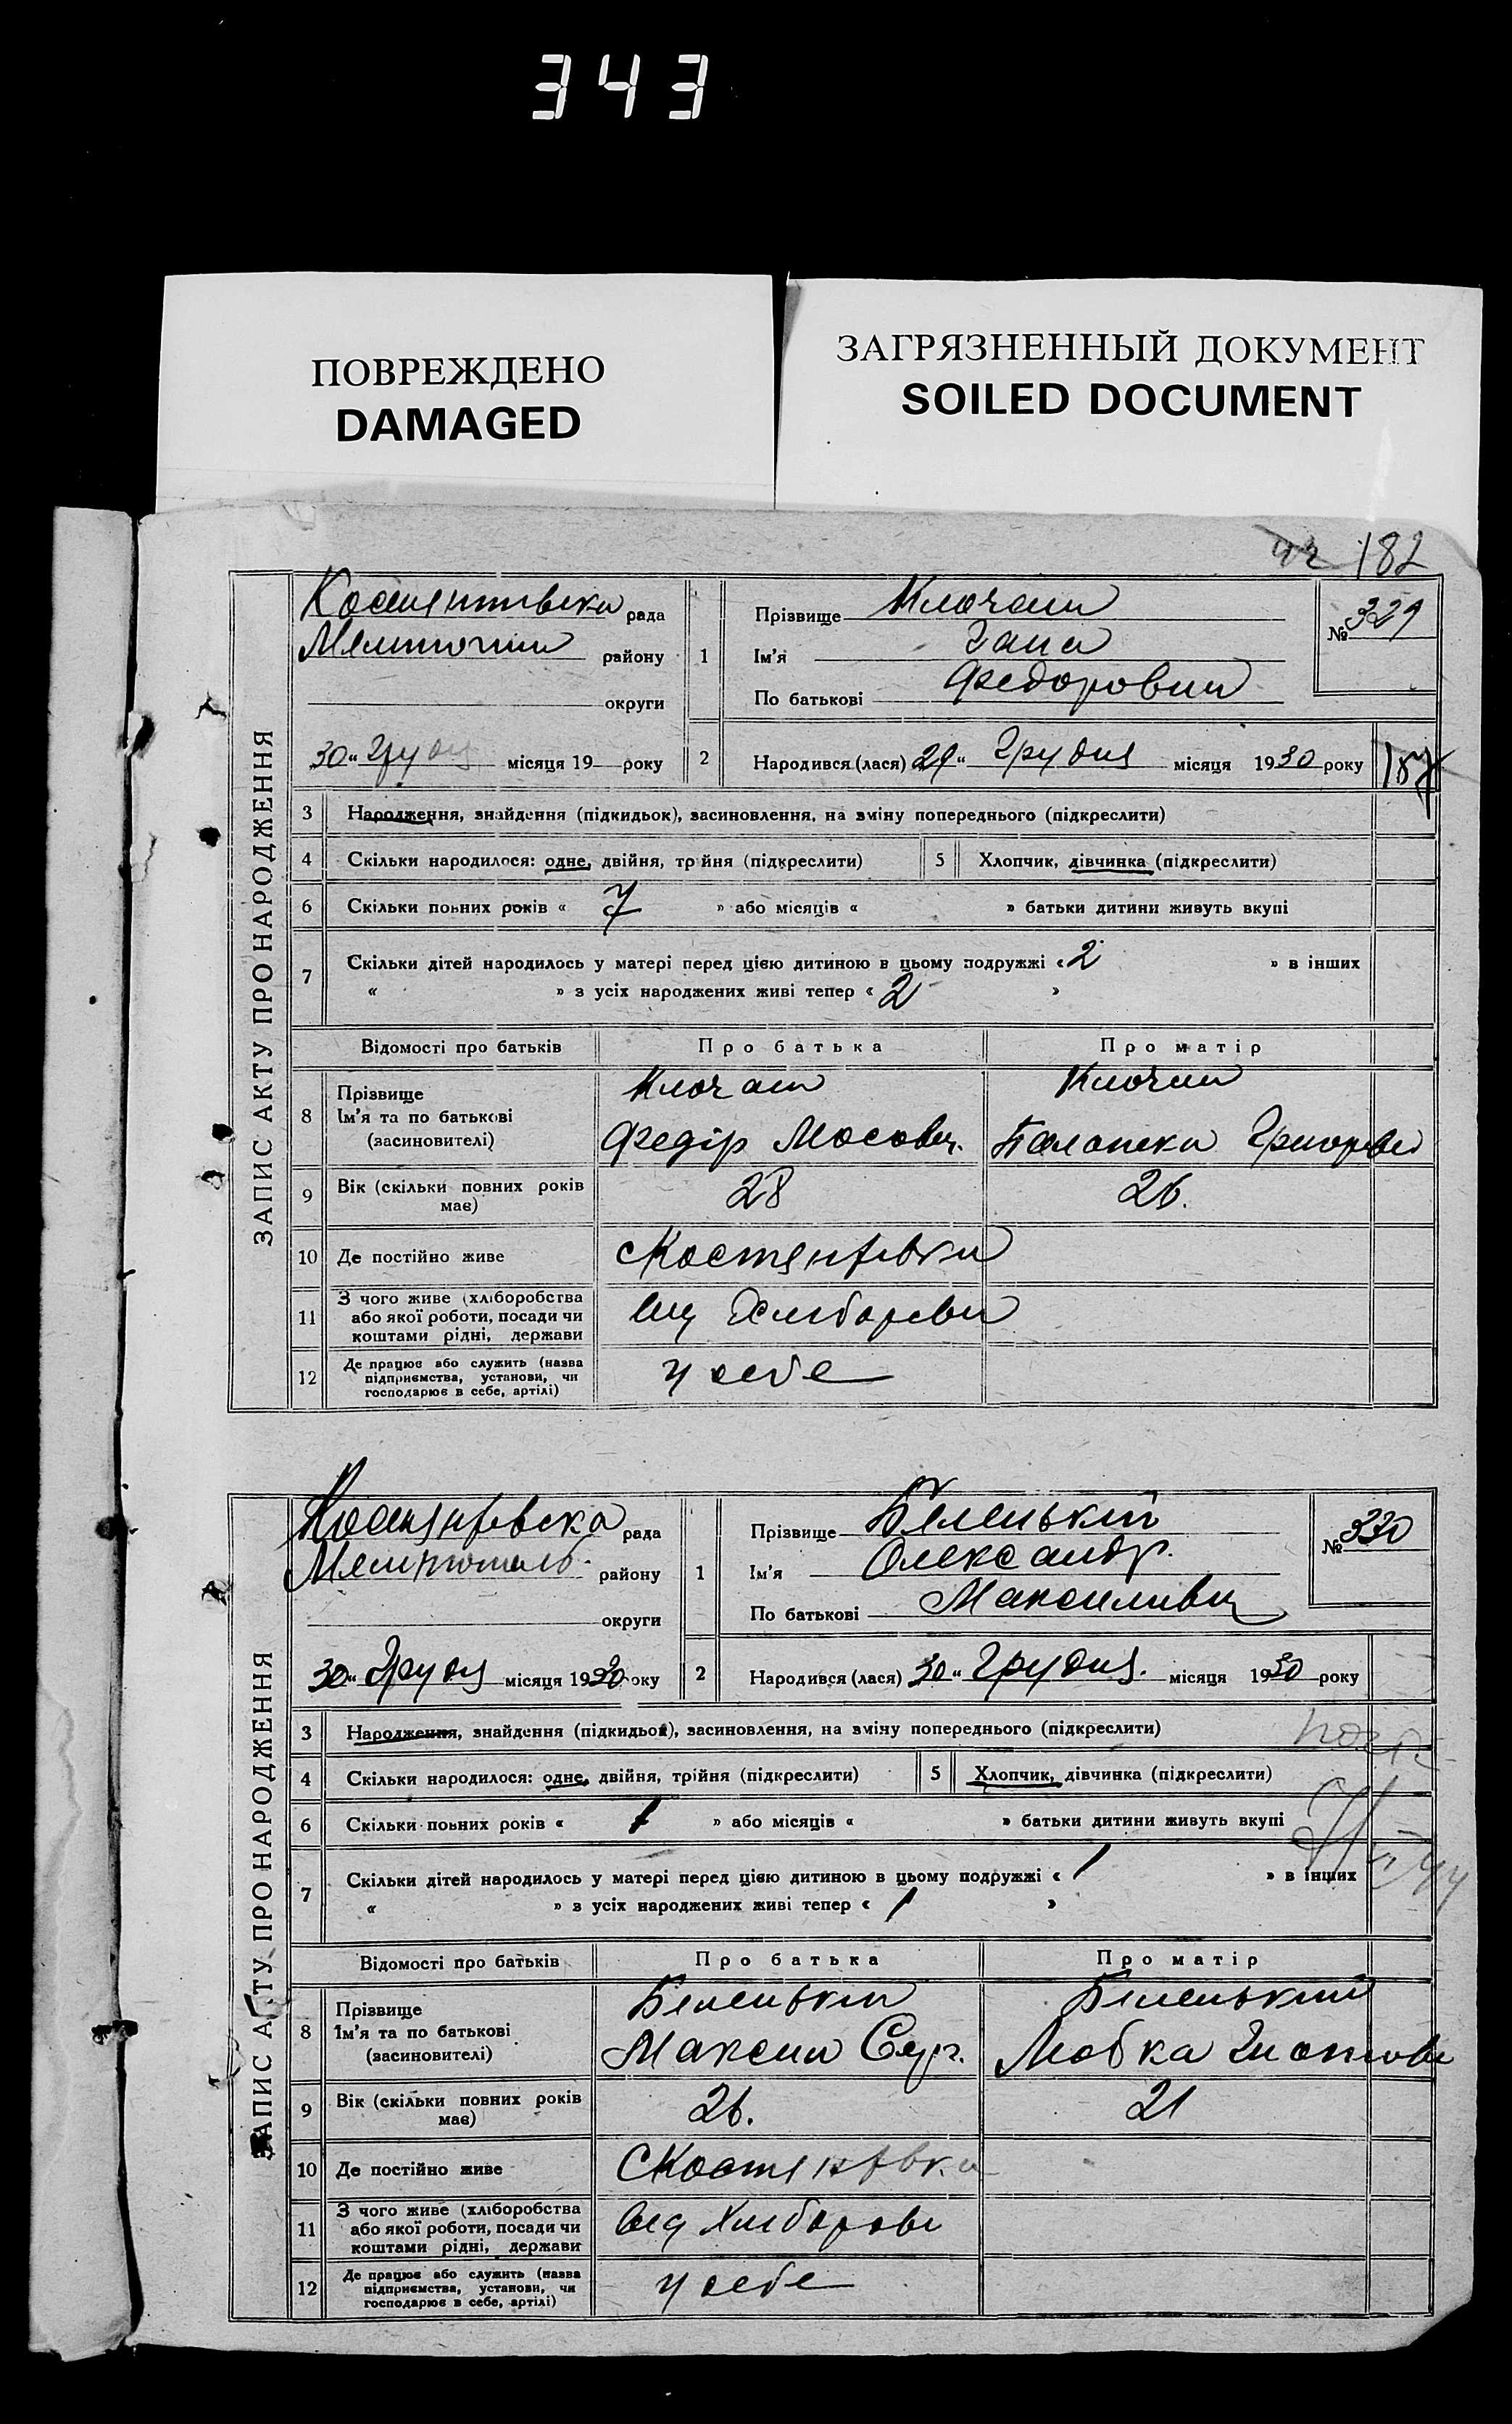 343
ПОВРЕЖДЕНО
DAMAGED
ЗАГРЯЗНЕННЫЙ ДОКУМЕНТ
SOILED DOCUMENT
182
ЗАПИС АКТУ ПРО НАРОДЖЕННЯ
рада
району
округи
30 " Грудня місяця 19 року
1
Прізвище Клочан
Ім'я Гана
По батькові Федоровн
№ 329
2
Народився (лася) 29 " Грудня місяця 1930 року
157
3 Народження, знайдення (підкидьок), засиновлення, на зміну попереднього (підкреслити)
4 Скільки народилося: одне, двійня, трійня (підкреслити)
5 Хлопчик, дівчинка (підкреслити)
6 Скільки повних років « 7 » або місяців « » батьки дитини живуть вкупі
7 Скільки дітей народилось у матері перед цією дитиною в цьому подружжі « 2 » в інших
« » з усіх народжених живі тепер « 2 »
Відомості про батьків Про батька Про матір
8 Прізвище
Ім'я та по батькові
(засиновителі)
Клочан
Федір Мосович.
Клочан
9 Вік (скільки повних років
має)
28
26.
10 Де постійно живе
с Костянтівка
11 З чого живе (хліборобства
або якої роботи, посади чи
коштами рідні, держави
12 Де працює або служить (назва
підприємства, установи, чи
господарює в себе, артілі)
у себе
ЗАПИС АКТУ ПРО НАРОДЖЕННЯ
рада
Мелітополь району
округи
30 " Грудня місяця 1930 року
1
Прізвище Беленький
Ім'я Олександр.
По батькові Максимович
№ 330
2
Народився (лася) 30 " Грудня. місяця 1930 року
3 Народження, знайдення (підкидьок), засиновлення, на зміну попереднього (підкреслити)
4 Скільки народилося: одне, двійня, трійня (підкреслити)
5 Хлопчик, дівчинка (підкреслити)
6 Скільки повних років « 1 » або місяців « » батьки дитини живуть вкупі
7 Скільки дітей народилось у матері перед цією дитиною в цьому подружжі « 1 » в інших
« » з усіх народжених живі тепер « 1 »
Відомості про батьків Про батька Про матір
8 Прізвище
Ім'я та по батькові
(засиновителі)
Беленький
Максим
Беленький
Любка
9 Вік (скільки повних років
має)
26.
21
10 Де постійно живе
с Костянтівка
11 З чого живе (хліборобства
або якої роботи, посади чи
коштами рідні, держави
12 Де працює або служить (назва
підприємства, установи, чи
господарює в себе, артілі)
у себе